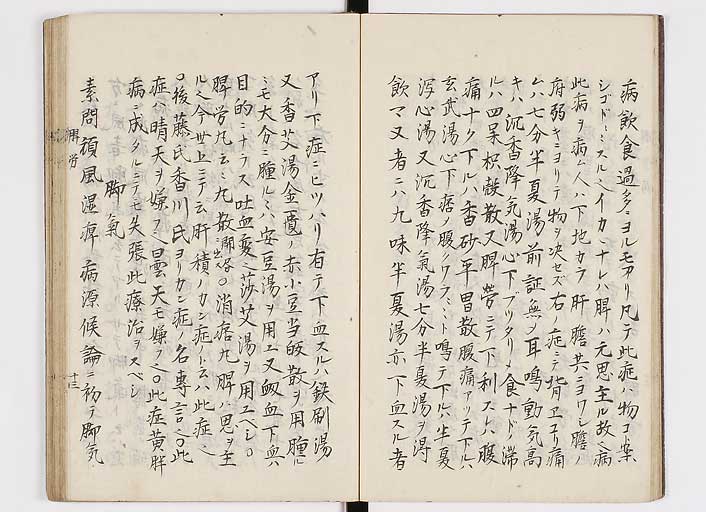 病飲食過多ニヨルモアリ凡テ此症ハ物コト案
シゴドヽスル也イカナレハ脾ハ元思主ル故也病
此病ヲ病ム人ハ下地カラ肝膽共ニヨワシ膽ノ
府弱キニヨリテ物ヲ决セズ右ノ症ニテ背ヱコリ痛
ムハ七分半夏湯前証無メ耳鳴動気高
キハ沉香降気湯心下ブツタリメ食ナドノ滞
ルハ四呆枳殻散又脾労ニテ下利スルハ腹
痛ナク下ルハ香砂平胃散腹痛アツテ下ルハ
玄武湯心下痞腹クワラヽト鳴テ下ルハ半夏
泻心湯又沉香降氣湯七分半夏湯ヲ得
飲マヌ者ニハ九味半夏湯亦下血スル者
アリ下症ニヒツハリ有テ下血スルハ鉄刷湯
又香艾湯金匱ノ赤小豆当皈散ヲ用腫ル
ミモ大分ニ腫ルヽハ安豆湯ヲ用ユ又衂血下血ハ
目的ニナラス吐血変也莎艾湯ヲ用ユベシ○
脾労九云ミ九散 ○消痞九脾ハ思ヲ主
ル也今世上ニテ云肝積ノカン症ノト云ハ此症也
○後藤氏香川氏ヨリカン症ノ名專言也○此
症ハ晴天ヲ嫌ヲ也曇天モ嫌ヲ也○此症黄胖
病ニ成タルニテモ失張此療治ヲスベシ
脚氣
素問頑風湿痺病源候論ニ初テ脚気
脾労
十三